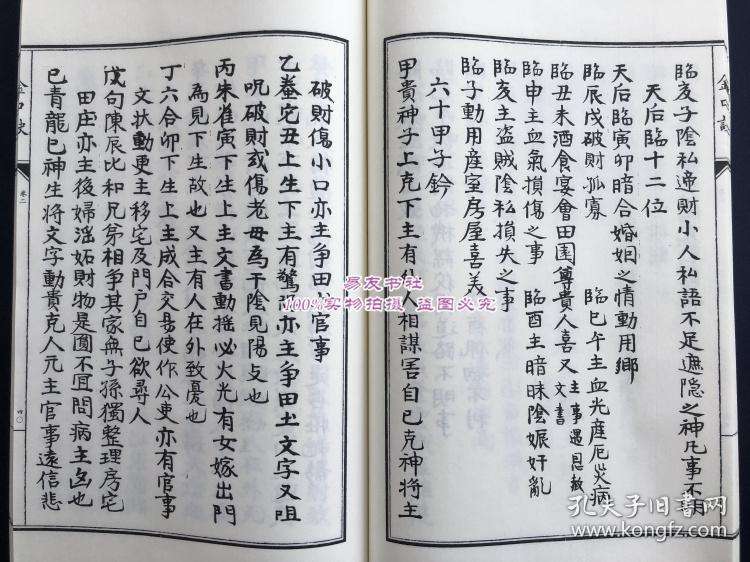 臨亥子陰私遺財小人私語不足遮隐之神凡事不明
天后臨十二位
天后臨寅卯暗合婚姻之情動用鄉
臨辰戌破財孤寡 臨巳午主血光産厄災病
臨丑未酒食宴會田園尊貴人喜又主事遇恩赦文書
臨申主血氣損傷之事 臨酉主暗昧陰娠奸亂
臨亥主盗賊陰私損失之事
臨子動用産室房屋喜美
六十甲子鈐
甲貴神子上克下主有 人相謀害自己克神將主
破財傷小口亦主争田 官事
乙螣宅丑上生下主有驚 亦主争田土文字又咀
呪破財或傷老母為干陰見陽爻也
丙朱雀寅下生上主文書動摇必火光有女嫁出門
為見下生故也又主有人在外致憂也
丁六合卯下生上主成合交易使作公吏亦有官事
文状動更主移宅及門户自己欲尋人
戊句陳辰比和兄弟相争其家無子孫獨整理房宅
田庄亦主後婦淫妬財物是圓不宜問病主凶也
已青龍巳神生将文字動貴克人元主官事遠信悲
金口訣
卷二
四〇
金口訣
易友书社
100%实物拍摄 盗图必究
孔夫子旧书网
www.kongfz.com